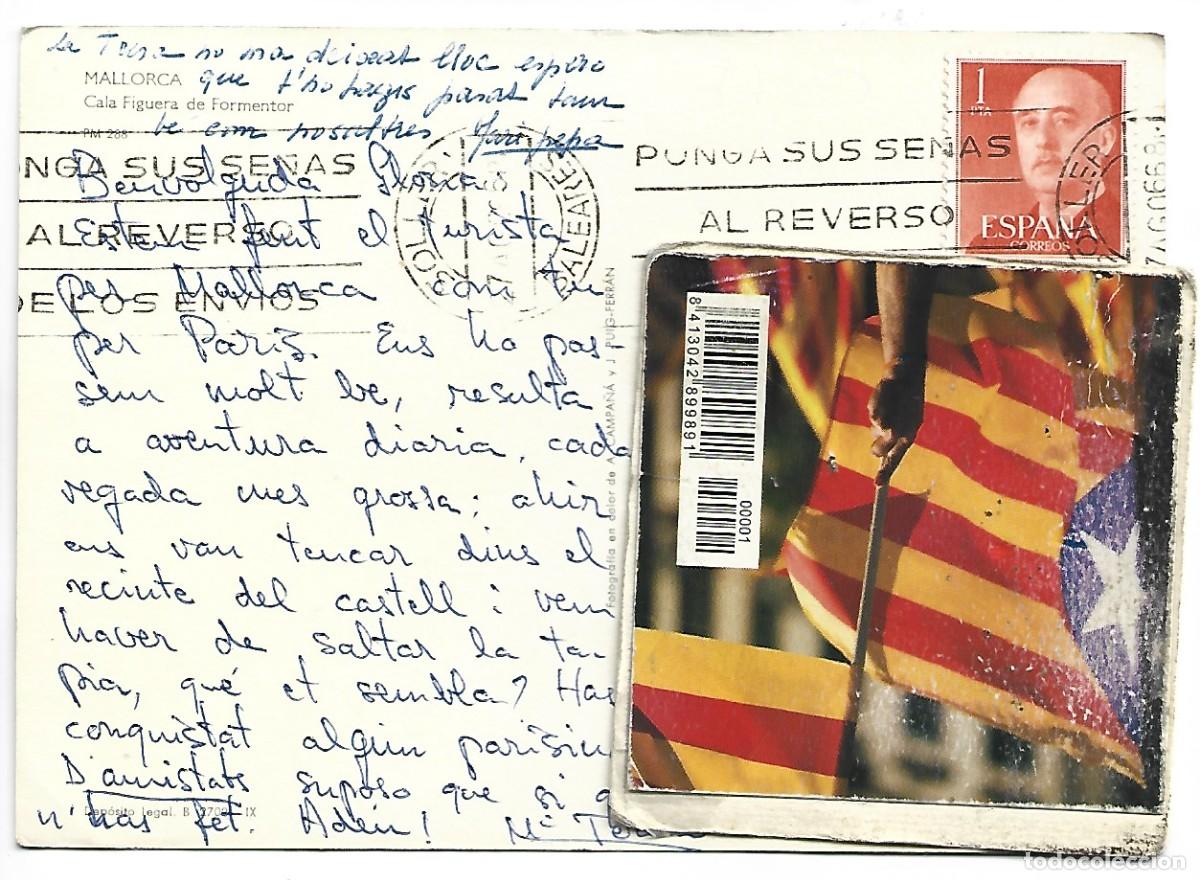 La Teresa no m'ha deixat lloc espero
que t'ho hagis passat tam
be com nosaltres Mari pepa
MALLORCA
Cala Figuera de Formentor
PM 288
PONGA SUS SEÑAS
AL REVERSO
DE LOS ENVIOS
SOLLER
BALEARES
PONGA SUS SEÑAS
AL REVERSO
1
PTA
ESPAÑA
CORREOS
SOLLER
Benvolguda Gloria:
Estem fent el turista
per Mallorca com tu
per Paris. Ens ho pas-
sem molt be, resulta
a aventura diaria, cada
vegada mes grossa; ahir
ens van tancar dins el
recinte del castell i vem
haver de saltar la ta-
pia, què et sembla? Has
conquistat algun parisin
D'amistats suposo que si q
n'has fet. Adéu! Mª Te
Depósito Legal. B IX
Fotografía en color de A. CAMPAÑÁ y J. PUIG-FERRÁN
8413042899891
00001
todocoleccion